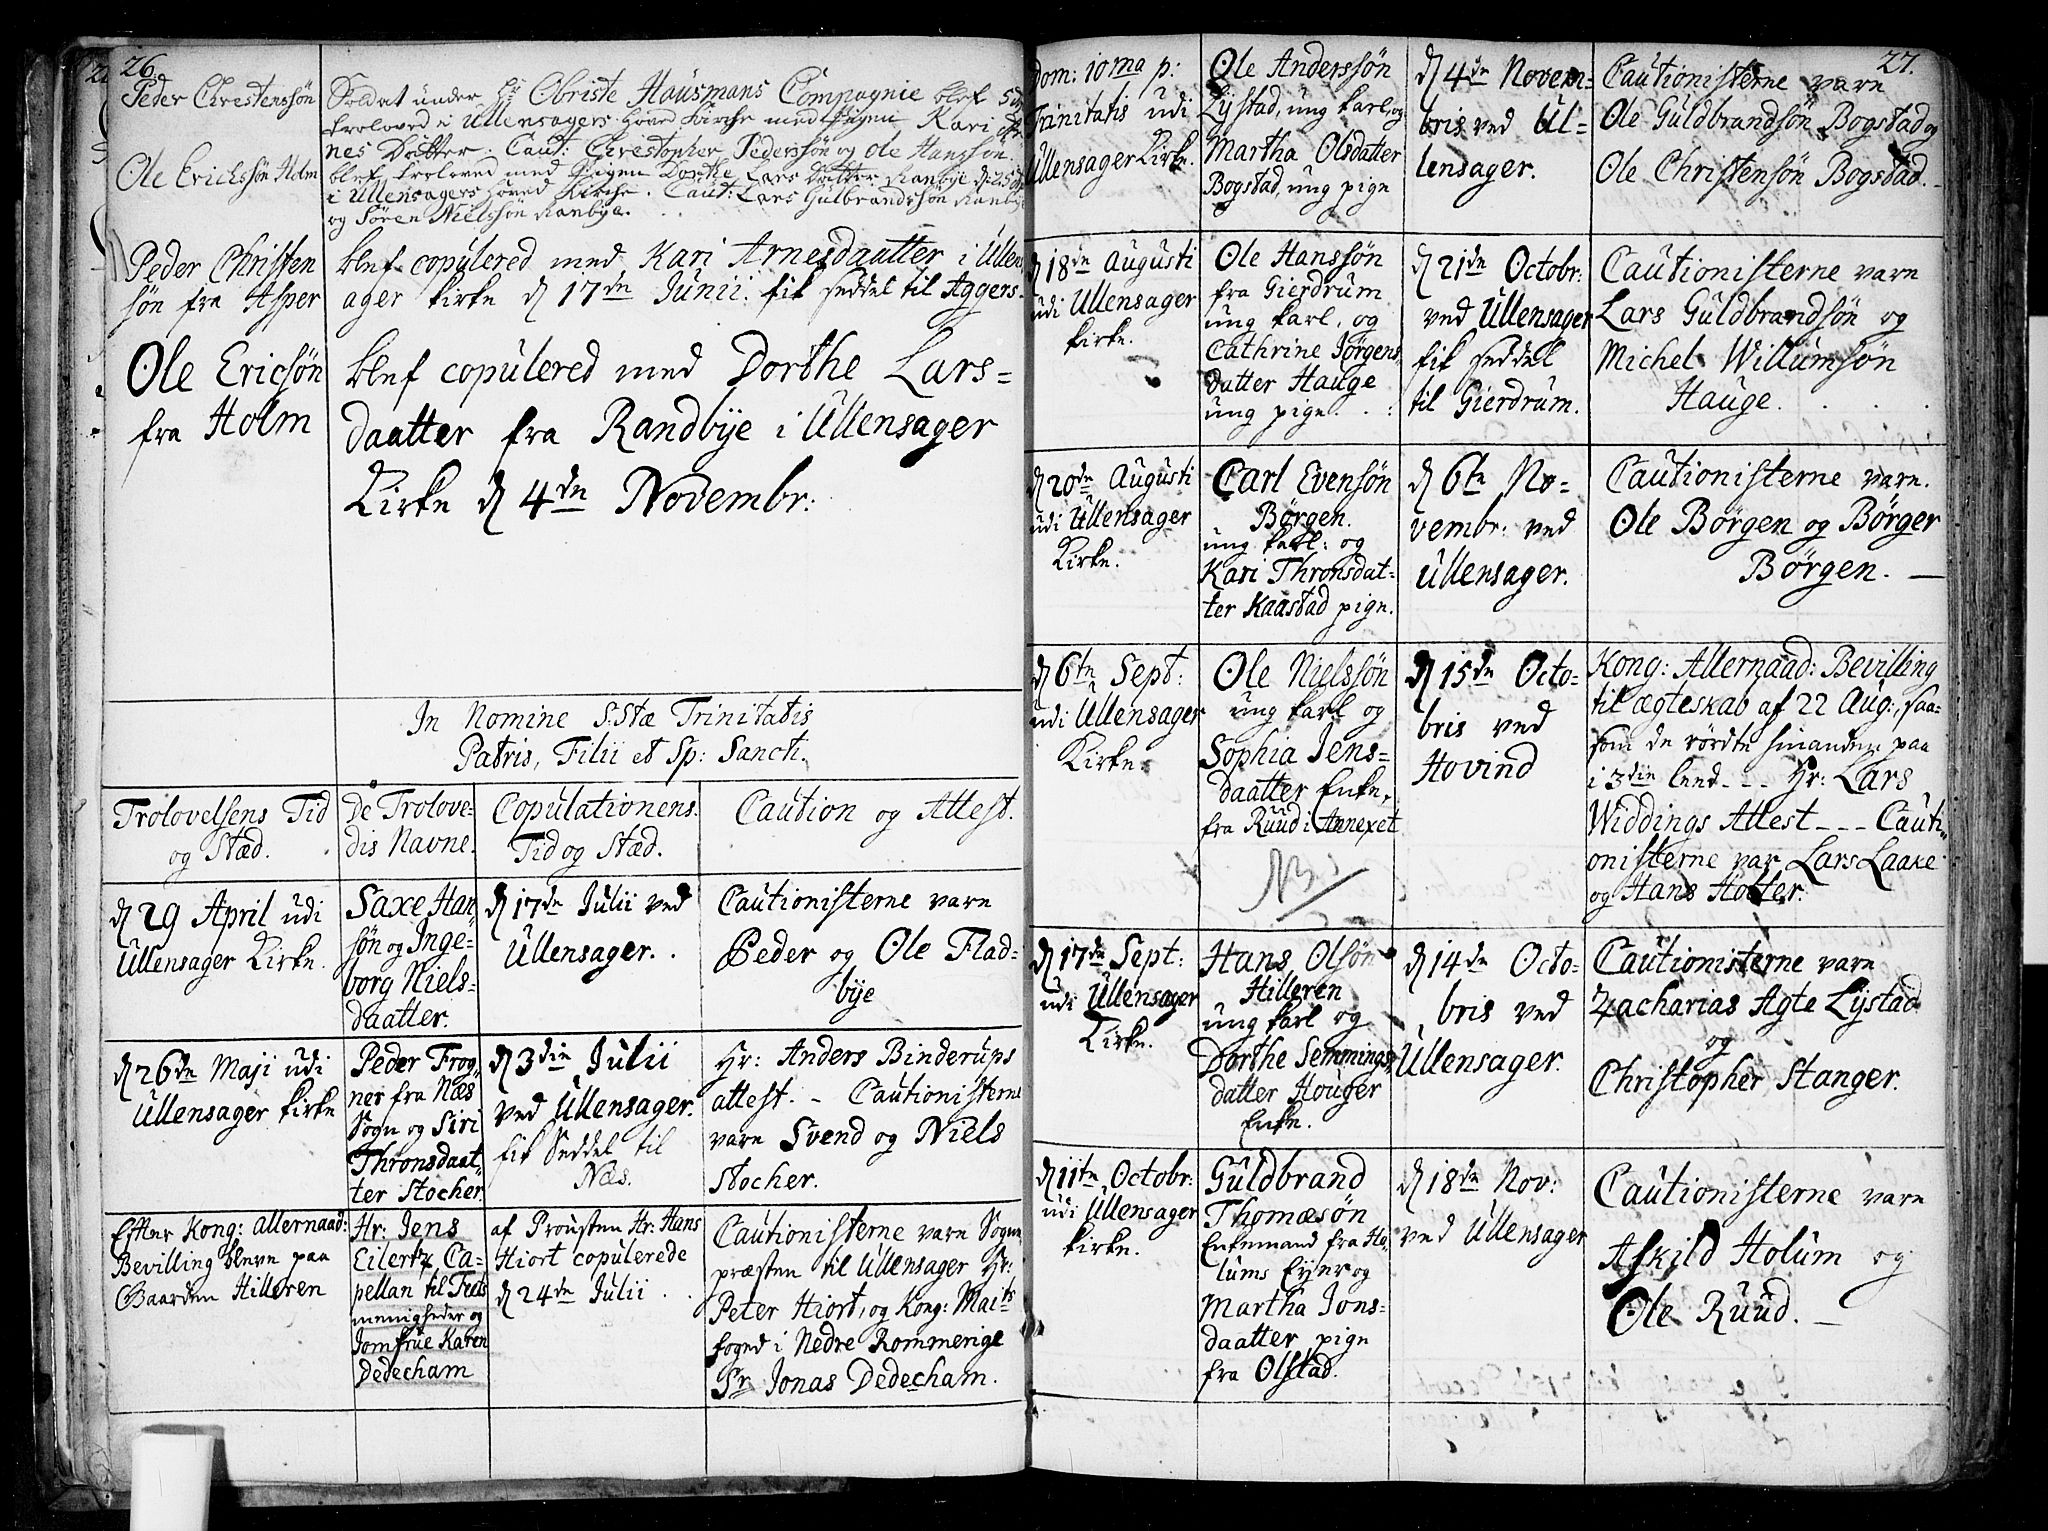 26.
Peder Chrestenssön
Soldat under Hr Obriste Hausmans Compagnie blef
troloved i Ullensagers hoved Kirche med Pigen Kari Ar-
nes Datter. Caut: Chrestopher Pederssön og Ole Hanssön.
Ole Erichssön Holm
blef troloved med Pigen Dorthe Lars Datter Ranbye d 25
i Ullensagers hoved Kirche. Caut: Lars Gulbrandssön Ranbye
og Sören Nielssön Ranbye.
Peder Christen
sön fra Asper
blef copulered med Kari Arnesdaatter i Ullens
ager Kirke d 17de Junii. fik seddel til Aggers.
Ole Ericsön
fra Holm
blef copulered med Dorthe Lars=
daatter fra Randbye i Ullensager
Kirke d 4de Novembr:
In Nomine S:Stæ Trinitatis
Patris, Filii et Sp: Sancti.
Trolovelsens Tid
og Stæd.
De Trolove-
dis Navne.
Copulationens
Tid og Stæd.
Caution og Attest.
d 29 April udi
Ullensager Kirke.
Saxe Han
sön og Inge=
borg Niels=
daatter.
d 17de Julii ved
Ullensager.
Cautionisterne vare
Peder og Ole Flad=
bye
d 26de Maji udi
Ullensager Kirke
Peder Frog
ner fra Næs
Sogn og Siri
Thronsdaat=
ter Stocher.
d 3die Julii
ved Ullensager.
fik Seddel til
Næs.
Hr: Anders Binderups
attest. - Cautionisterne
vare Svend og Niels
Stocher.
Efter Kong: allernaad:
Bevilling bleve paa
Gaarden Hilleren
Hr: Jens
Eilertz Ca=
pellan til Fets
menigheder og
Jomfrue Karen
Dedecham
af Prousten Hr: Hans
Hiort copulerede
d 24de Julii
Cautionisterne vare Sogne
præsten til Ullensager Hr:
Peter Hiort, og Kong: Maits
foged i Nedre Rommerige
Sr Jonas Dedecham.
27.
Dom: 10ma p:
Trinitatis udi
Ullensager Kirke.
Ole Anderssön
Lystad, ung karl, og
Martha Olsdatter
Bogstad, ung pige
d 4de Novem-
bris ved Ul=
lensager.
Cautionisterne vare
Ole Guldbrandsön Bogstad og
Ole Christensön Bogstad.
d 18de Augusti
udi Ullensager
Kirke.
Ole Hanssön
fra Gierdrum
ung karl, og
Cathrine Jörgens
datter Hauge
ung pige
d 21de Octobr:
ved Ullensager
fik seddel
til Gierdrum.
Cautionisterne vare
Lars Guldbrandsön og
Michel Willumsön
Hauge.
d 20de Augusti
udi Ullensager
Kirke.
Carl Evensön
Börgen.
ung karl: og
Kari Thronsdat=
ter Kaastad pige.
d 6te No=
vembr: ved
Ullensager.
Cautionisterne vare.
Ole Börgen og Börger
Börgen.
d 6te Sept:
udi Ullensager
Kirke.
Ole Nielssön
ung karl og
Sophia Jens=
daatter Enke,
fra Ruud i Annexet
NB
d 15de Octo-
bris ved
Hovind
Kong: Allernaad: Bevilling
til ægteskab af 22 Aug:, saa=
som de rördte hinanden paa
i 3die leed - - - Hr: Lars
Widdings Attest - - - Cauti=
onisterne var Lars Laake
og Hans Holter.
d 17de Sept:
udi Ullensager
Kirke.
Hans Olsön
Hilleren
ung karl og
Dorthe Semmings
datter Houger
Enke.
d 14de Octo-
bris ved
Ullensager.
Cautionisterne vare
Zacharias Agte Lystad
og
Christopher Stanger.
d 11te Octobr:
udi Ullensager
Kirke.
Guldbrand
Thomæsön
Enkemand fra Ho
lums Eyer og
Martha Jons=
daatter pige
fra Olstad.
d 18de Nov:
ved Ullensager
Cautionisterne vare
Askild Holum og
Ole Ruud.